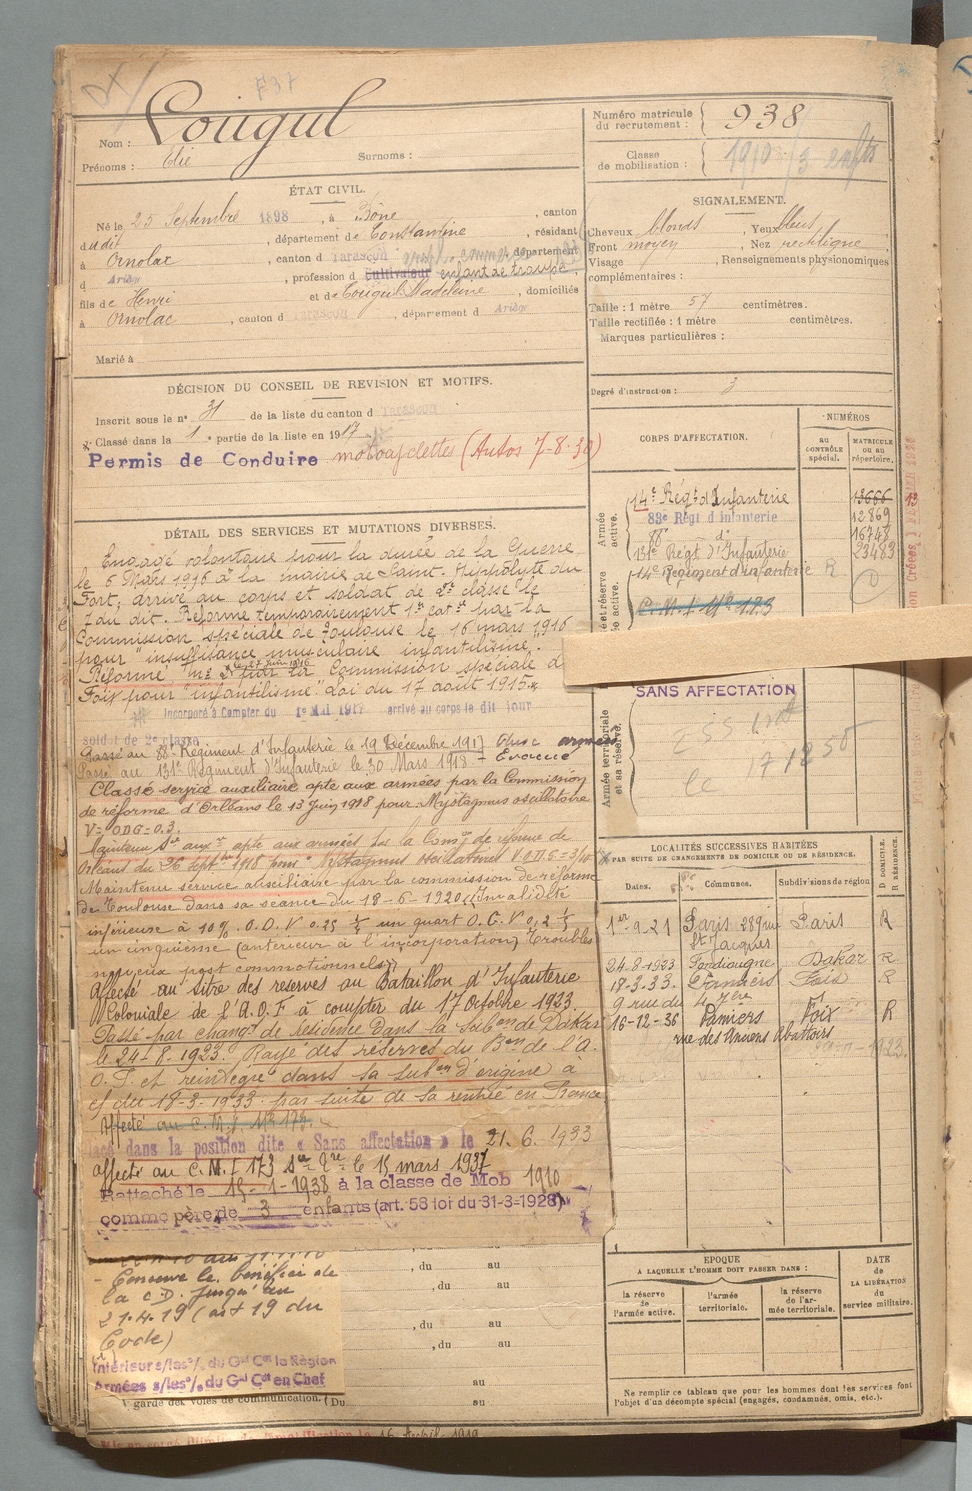 737
Nom : Cougul
Prénoms : Elie Surnoms :
ÉTAT CIVIL.
Né le 25 Septembre 1898, à Bône, canton
dudit, département de Constantine, résidant
à Ornolac, canton d Tarascon, département
d Ariège, profession d Cultivateur
fils de Henri et de Cougul Madeleine, domiciliés
à Ornolac, canton d Tarascon, département d Ariège
Marié à
DÉCISION DU CONSEIL DE REVISION ET MOTIFS.
Inscrit sous le n° 31 de la liste du canton d Tarascon
Classé dans la 1e partie de la liste en 1917
Permis de Conduire motocyclettes (Autos 7-8-30)
DÉTAIL DES SERVICES ET MUTATIONS DIVERSES.
Engagé volontaire pour la durée de la Guerre
le 6 Mars 1916 à la mairie de Saint-Hippolyte du
Fort; arrivé au corps et soldat de 2e classe le
7 du dit. Réformé temporairement 1e cat. par la
Commission spéciale de Toulouse le 16 mars 1916
pour "insuffisance musculaire infantilisme".
Réformé n° 2 le 27 Juin 1916 par la Commission spéciale d
Foix pour "infantilisme" Loi du 17 août 1915.
Incorporé à Compter du 1e Mai 1917 arrivé au corps le dit jour
soldat de 2e classe
Passé au 88e Régiment d'Infanterie le 19 Décembre 1917
Passé au 131e Régiment d'Infanterie le 30 Mars 1918 - Evacué
Classé service auxiliaire apte aux armées par la Commission
de réforme d'Orléans le 13 Juin 1918 pour Nystagmus oscillatoire
V= ODG=0.3.
Maintenu Sce auxre apte aux armées par la Comon de réforme de
Orléans du 26 septbre 1918 pour Nystagmus
Maintenu service auxiliaire par la commission de réforme
de Toulouse dans sa séance du 18-6-1920 (Invalidité
inférieure à 10% O.D. V 0.25 ¼ un quart O.G. V 0,2 ⅕
un cinquième (antérieur à l'incorporation) Troubles
nerveux post commotionnels)
Affecté au titre des reserves au Bataillon d'Infanterie
Coloniale de l'A.O.F à compter du 17 Octobre 1923.
Passé par changt de résidence dans la Subon de Dakar
le 24-8-1923. Rayé des réserves du Bon de l'A.
O.F. et réintégré dans sa subon d'origine à
c/ du 18-3-1933 par suite de sa rentrée en France
Affecté au C.M.I. N° 173.
lacé dans la position dite « Sans affectation » le 21.6.1933
affecté au C.M.I 173 le 15 mars 1937
Rattaché le 15-1-1938 à la classe de Mob 1910
comme père de 3 enfants (art. 58 loi du 31-3-1928)
- Conserve le bénéfice de
la C.D. jusqu'au
21.4.19 (art 19 du
Code)
Intérieur s/las°/. du Gal Cdt la Région
Armées s/las°/. du Gal Cdt en Chef
V garde des voies de communication. (Du au
, du au
, du au
, du au
, du au
au
Numéro matricule du recrutement : 938
Classe de mobilisation : 1910 / 3 enfts
SIGNALEMENT.
Cheveux blonds, Yeux bleus
Front moyen, Nez rectiligne
Visage, Renseignements physionomiques
complémentaires :
Taille : 1 mètre 57 centimètres.
Taille rectifiée : 1 mètre centimètres.
Marques particulières :
Degré d'instruction : 3
CORPS D'AFFECTATION.
NUMÉROS
au CONTRÔLE spécial.
MATRICULE ou au répertoire.
Armée active.
14e Régt d'Infanterie 13666
83e Régt d infanterie 12869
88 d° 16748
131e Régt d'Infanterie 23483
14e Regiment d'infanterie R
C.M.I. N° 173
SANS AFFECTATION
Armée territoriale et sa réserve.
LOCALITÉS SUCCESSIVES HABITÉES
PAR SUITE DE CHANGEMENTS DE DOMICILE OU DE RÉSIDENCE.
Dates. Communes. Subdivisions de région D DOMICILE. R RÉSIDENCE.
1er-9-21 Paris 289 rue St Jacques Paris R
24-8-1923 Dakar R
18-3-33. Pamiers Foix R
9 rue du
16-12-36 Pamiers Foix R
rue des Anciens Abattoirs
EPOQUE
A LAQUELLE L'HOMME DOIT PASSER DANS :
la réserve de l'armée active.
l'armée territoriale.
la réserve de l'armée territoriale.
DATE de LA LIBÉRATION du service militaire.
Ne remplir ce tableau que pour les hommes dont les services font
l'objet d'un décompte spécial (engagés, condamnés, omis, etc.).